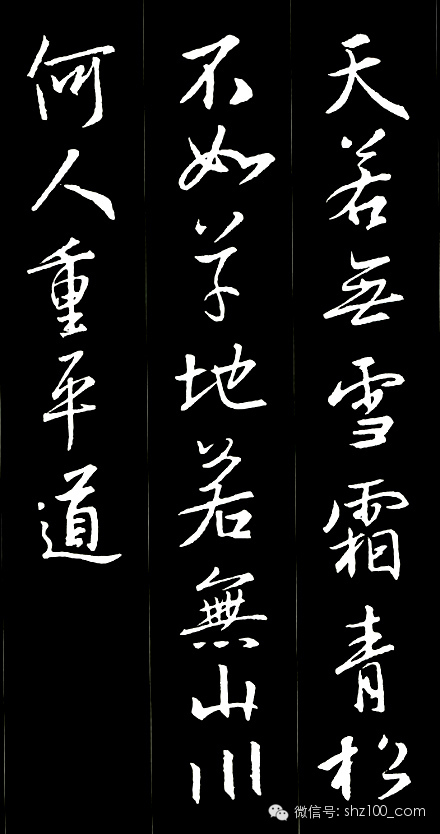 天若無雪霜青松
不如草地若無山川
何人重平道
微信号: shz100_com